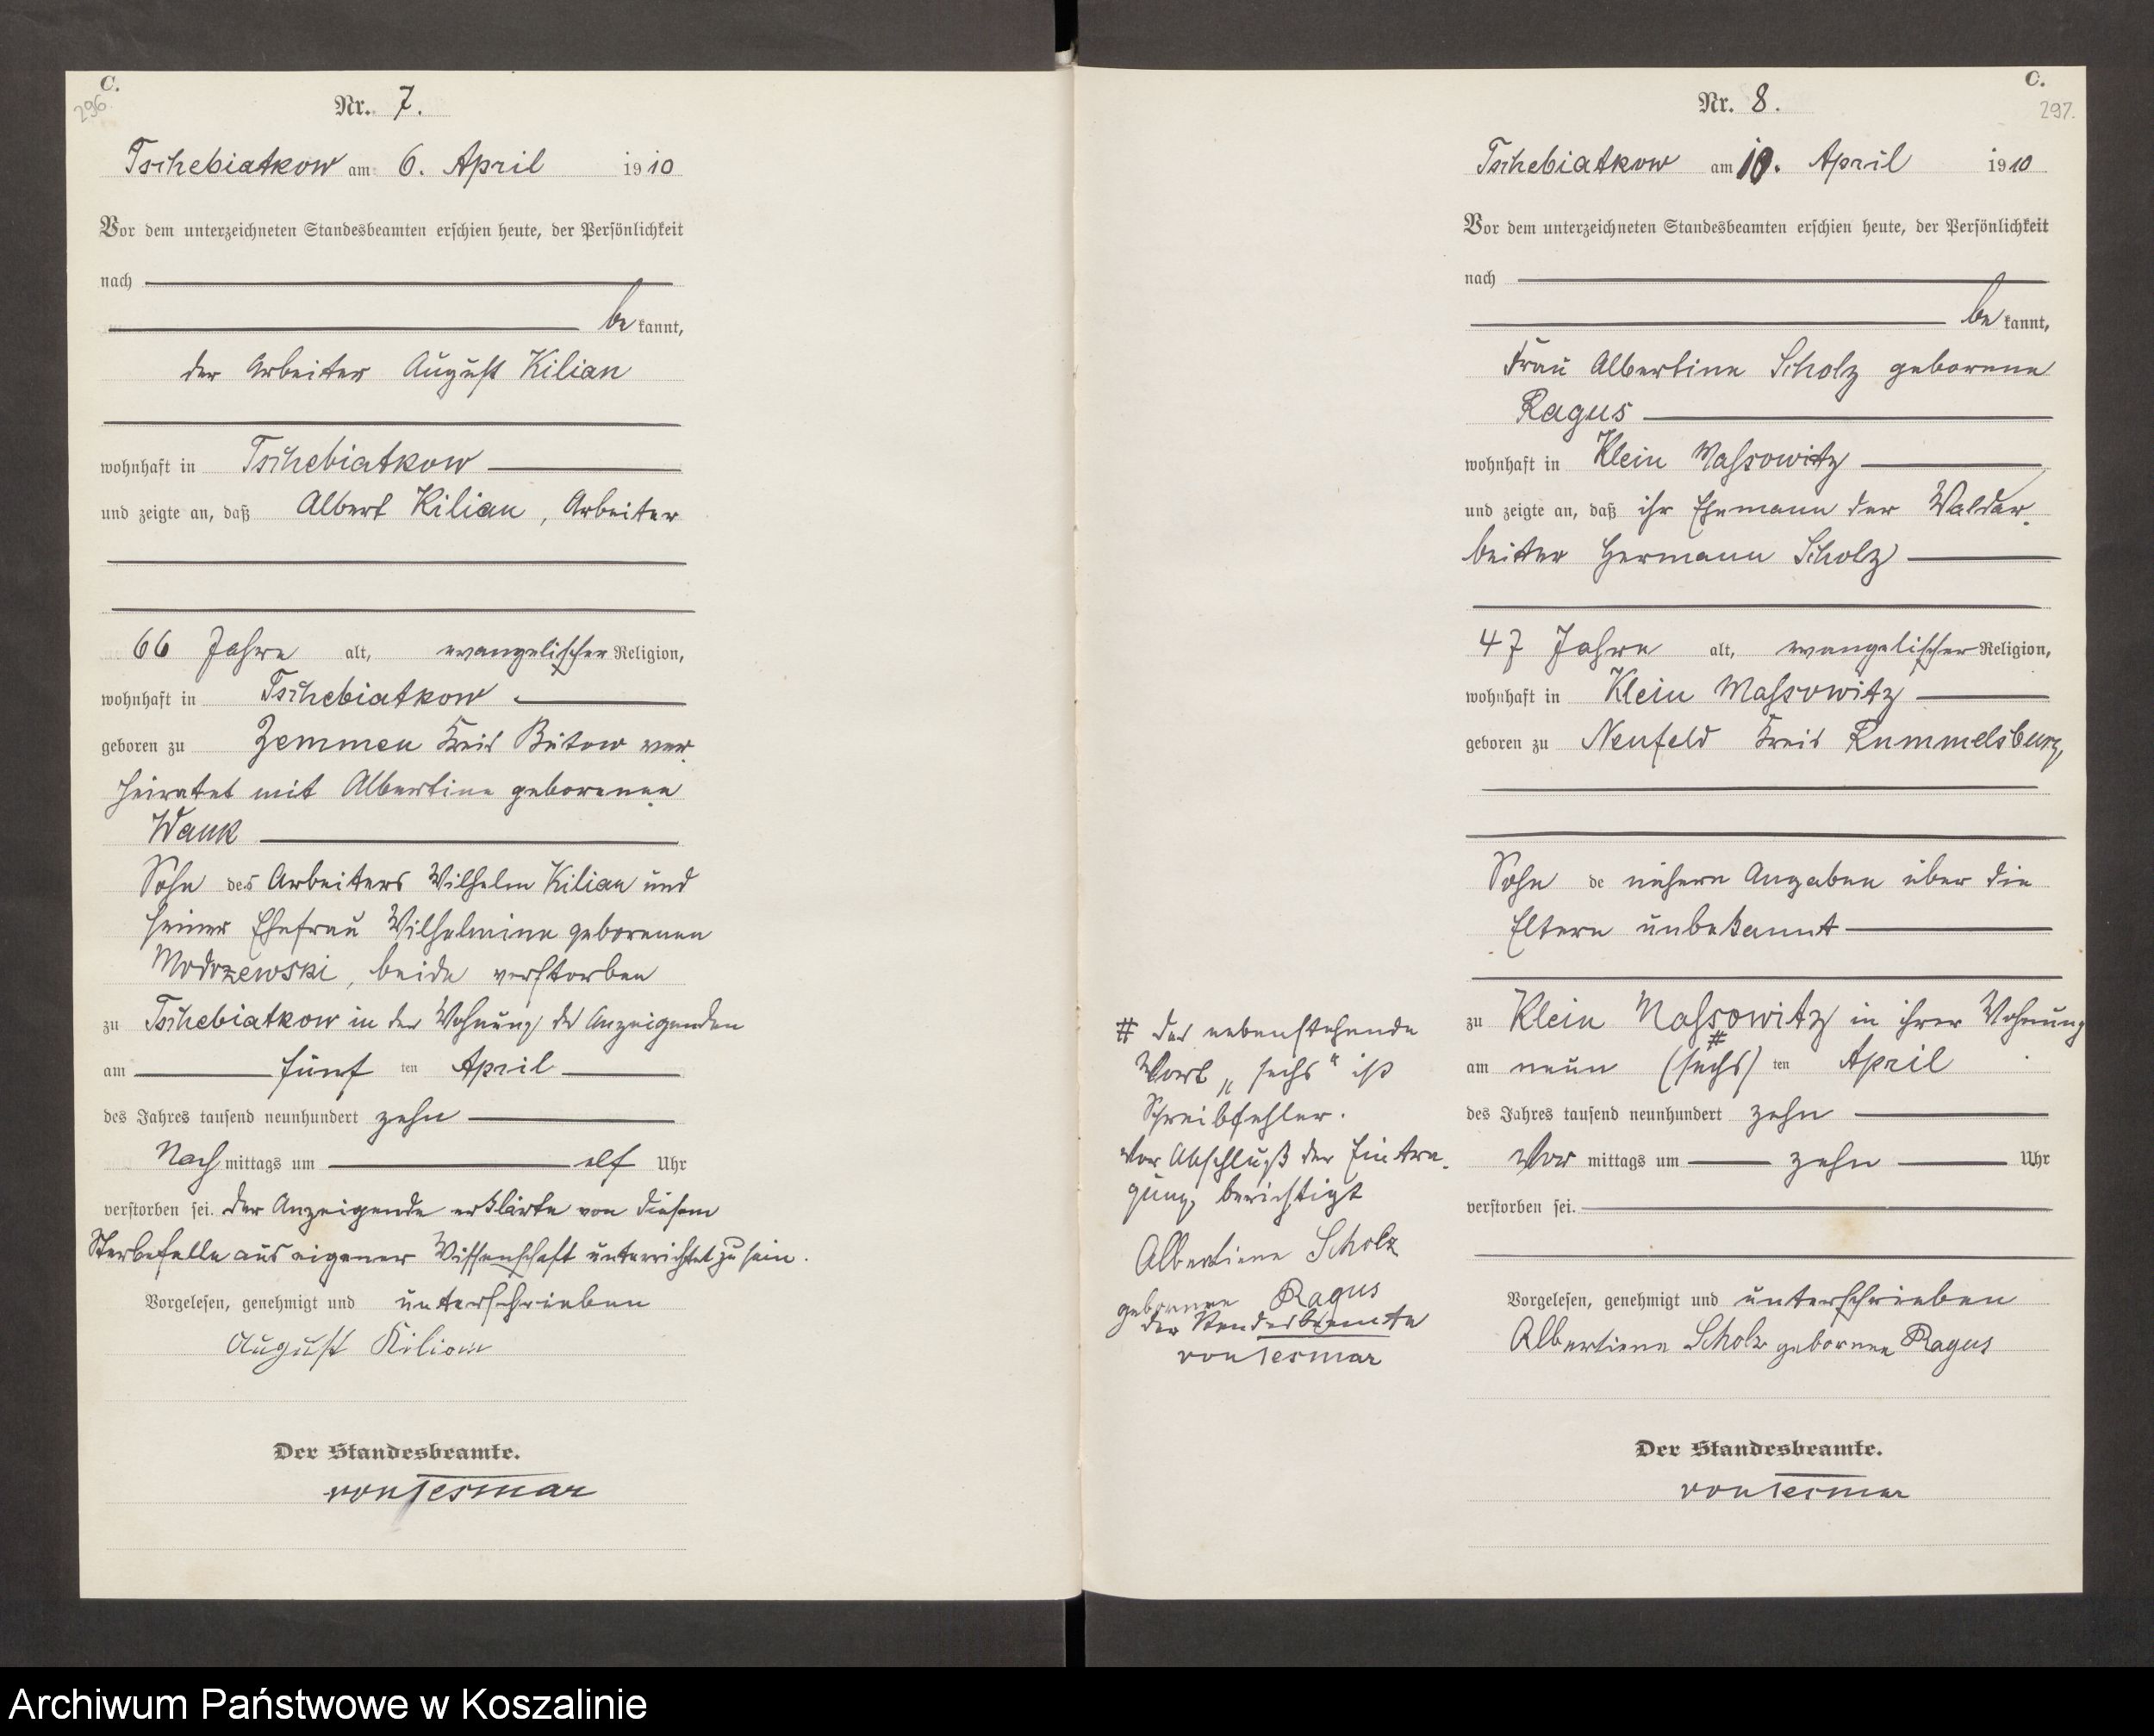 C.
296.
Nr. 7.
Tschebiatkow am 6. April 1910
Vor dem unterzeichneten Standesbeamten erschien heute, der Persönlichkeit
nach
be kannt,
der Arbeiter August Kilian
wohnhaft in Tschebiatkow
und zeigte an, daß Albert Kilian, Arbeiter
66 Jahre alt, evangelischer Religion,
wohnhaft in Tschebiatkow
geboren zu Zemmen Kreis Bütow ver-
heiratet mit Albertine geborenen
Wauk
Sohn des Arbeiters Wilhelm Kilian und
seiner Ehefrau Wilhelmine geborenen
Modrzewski, beide verstorben
zu Tschebiatkow in der Wohnung des Anzeigenden
am fünf ten April
des Jahres tausend neunhundert zehn
Nach mittags um elf Uhr
verstorben sei. Der Anzeigende erklärte von diesem
Sterbefalle aus eigener Wissenschaft unterrichtet zu sein.
Vorgelesen, genehmigt und unterschrieben
August Kilian
Der Standesbeamte.
von Tesmar
C.
297.
Nr. 8.
Tschebiatkow am 10. April 1910
Vor dem unterzeichneten Standesbeamten erschien heute, der Persönlichkeit
nach
be kannt,
Frau Albertine Scholz geborene
Ragus
wohnhaft in Klein Massowitz
und zeigte an, daß ihr Ehemann der Waldar-
beiter Hermann Scholz
47 Jahre alt, evangelischer Religion,
wohnhaft in Klein Massowitz
geboren zu Neufeld Kreis Rummelsburg,
Sohn de nähere Angaben über die
Eltern unbekannt
zu Klein Massowitz in ihrer Wohnung
am neun (sechs) # ten April
des Jahres tausend neunhundert zehn
Vor mittags um zehn Uhr
verstorben sei.
Vorgelesen, genehmigt und unterschrieben
Albertiene Scholz geborene Ragus
Der Standesbeamte.
von Tesmar
# das nebenstehende
Wort „sechs“ ist
Schreibfehler.
Vor Abschluß der Eintra-
gung berichtigt
Albertiene Scholz
geborene Ragus
der Standesbeamte
von Tesmar
Archiwum Państwowe w Koszalinie